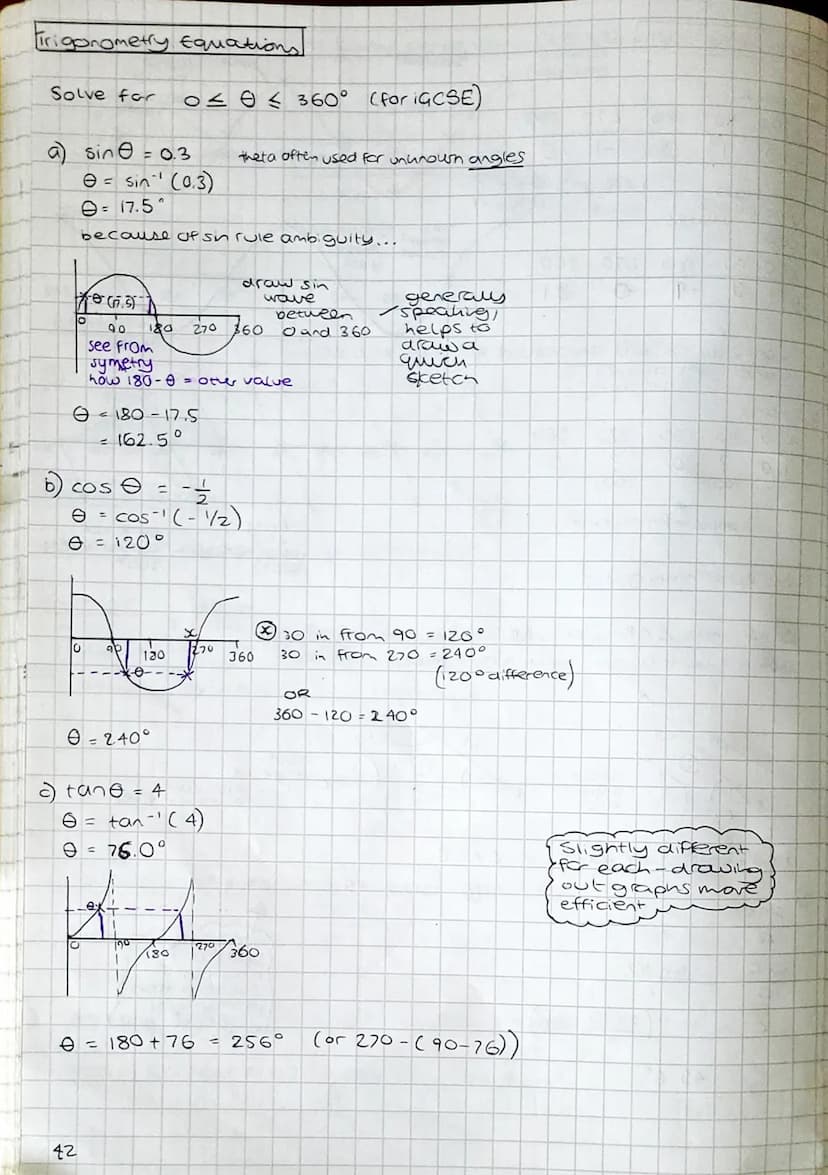 Trigonometry Equations
Solve for 0 ≤ θ ≤ 360° (for iGCSE)
a) sinθ = 0.3 theta often used for unknown angles
θ = sin⁻¹ (0.3)
θ = 17.5°
because of sin rule ambiguity...
θ (17.5)
0 90 180 270 360
draw sin
wave
between
0 and 360
generally
speaking,
helps to
draw a
quick
sketch
see from
symetry
how 180 - θ = other value
θ = 180 - 17.5
= 162.5°
b) cos θ = -1/2
θ = cos⁻¹ (-1/2)
θ = 120°
x
0 90 180 270 360
θ
x 30 in from 90 = 120°
30 in from 270 = 240°
(120° difference)
OR
360 - 120 = 240°
θ = 240°
c) tanθ = 4
θ = tan⁻¹ (4)
θ = 76.0°
Slightly different
for each - drawing
out graphs more
efficient
θ
0 90 180 270 360
θ = 180 + 76 = 256° (or 270 - (90-76))
42